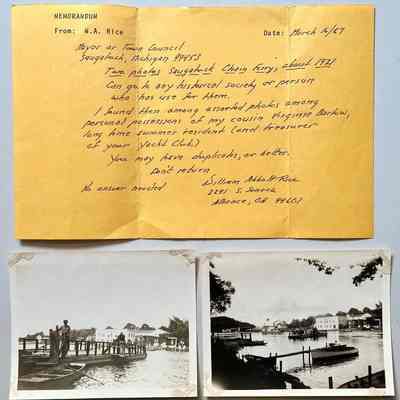 MEMORANDUM
From: W.A. Rice Date: March 16/87
Mayor or Town Council
Saugatuck, Michigan 49453
Two photos Saugatuck Chain Ferry, about 1921
Can go to any historical society or person
who has use for them.
I found them among assorted photos among
personal possessions of my cousin Virginia
long time summer resident (and treasurer
of your Yacht Club.)
You may have duplicates, or better.
Don't return
No answer needed William Abbott Rice
2241 S.
CA 94601